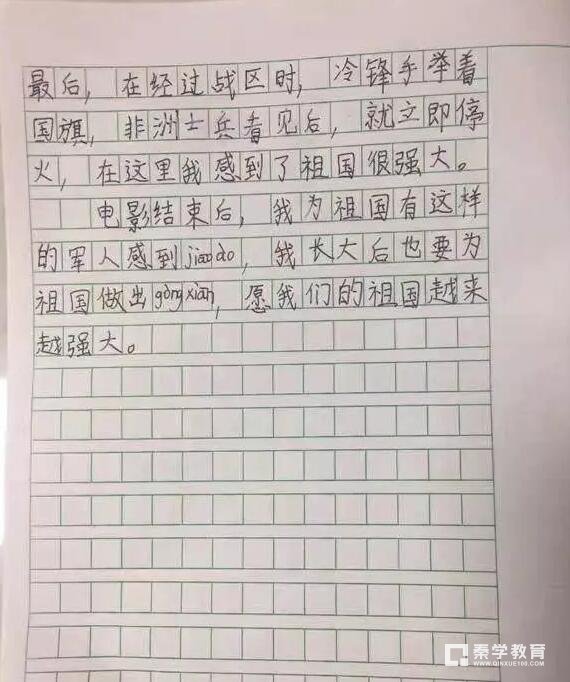 最后，在经过战区时，冷锋手举着
国旗，非洲士兵看见后，就立即停
火，在这里我感到了祖国很强大。
电影结束后，我为祖国有这样
的军人感到jiaodo，我长大后也要为
祖国做出gòngxiàn，愿我们的祖国越来
越强大。
秦学教育
WWW.QINXUE100.COM